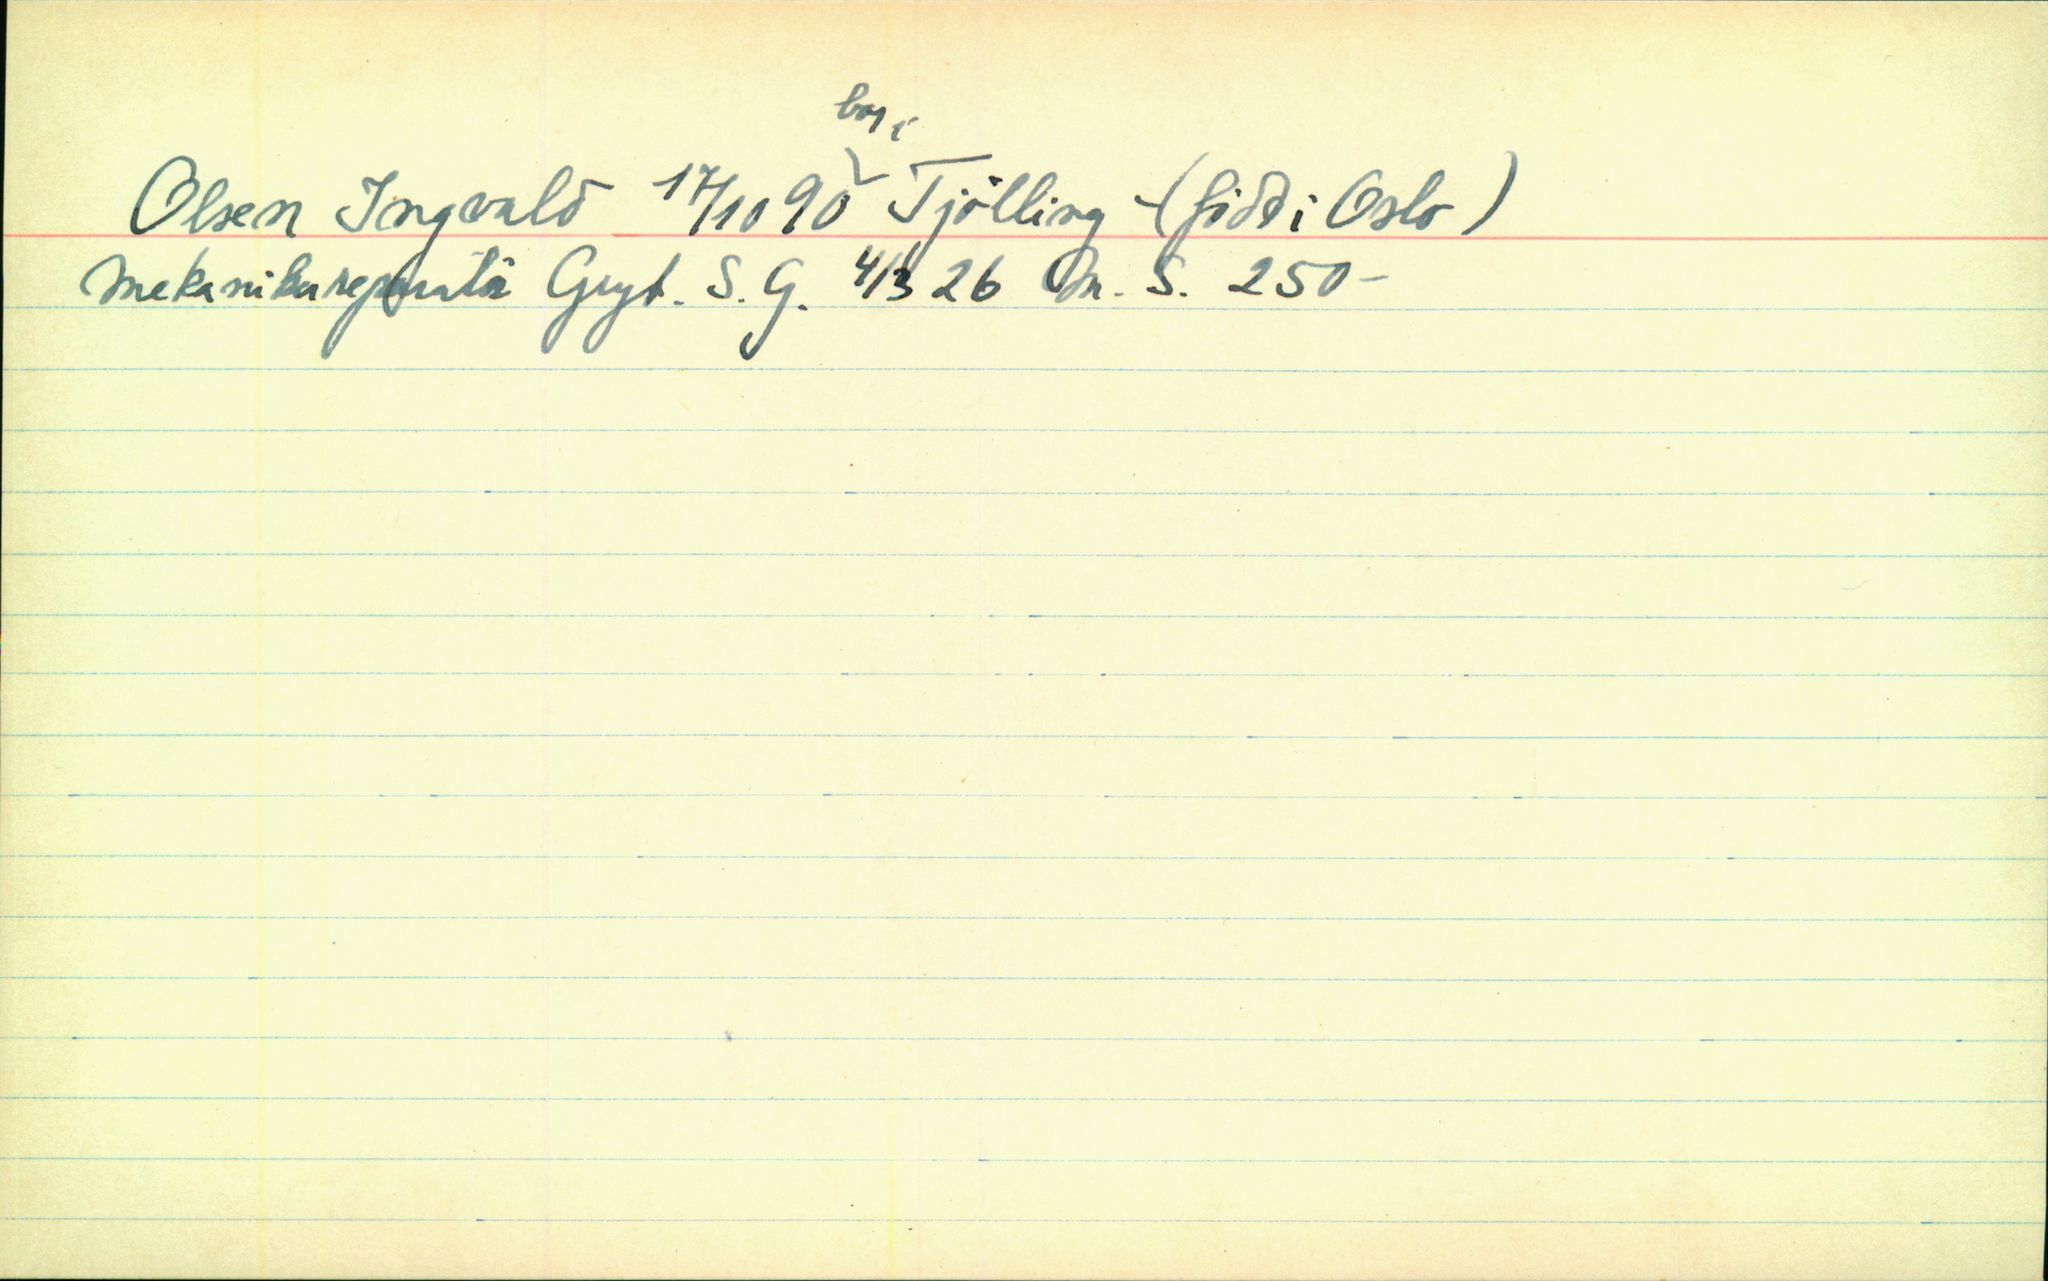 bor i
Olsen Ingvald 17/10 90 Tjölling (född i Oslo)
Mekanikerreparatör Gryt. S. G. 4/3 26 On. S. 250-